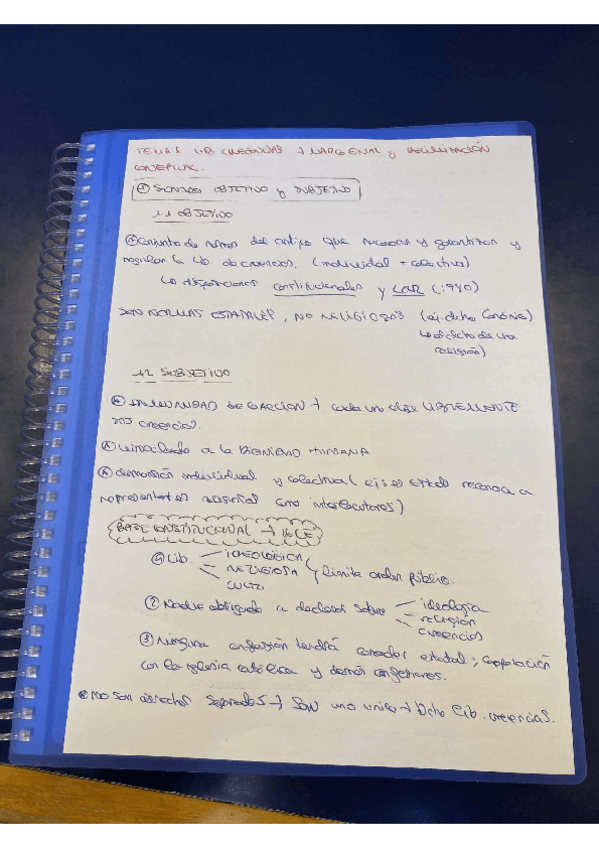 TEMA 5 LIB. CREENCIAS → MARGENAL y DELIMITACIÓN
CONCEPTUAL.
① SENTIDO OBJETIVO y SUBJETIVO
1.1 OBJETIVO
conjunto de normas del antipo que reconocen y garantizan y
regulan la lib de creencias. (individual + colectiva)
↳ disposiciones constitucionales y LOLR (1980)
SON NORMAS ESTATALES, NO RELIGIOSAS (ej. dcho Canónico
↳ el dcho de una
religión)
1.2 SUBJETIVO
INMUNIDAD DE COACCIÓN → cada uno elige LIBREMENTE
sus creencias.
vinculado a la DIGNIDAD HUMANA
dimensión individual y colectiva (ej: es el Estado reconoce a
representantes como interlocutores)
BASE CONSTITUCIONAL → 16 CE
① Lib. IDEOLOGICA
RELIGIOSA } límite orden público.
CULTO
② Nadie obligado a declarar sobre ideología
religión
creencias
③ Ninguna confesión tendrá carácter estatal; cooperación
con la iglesia católica y demás confesiones.
NO son derechos separados → SON uno único → Dcho Lib. creencias.